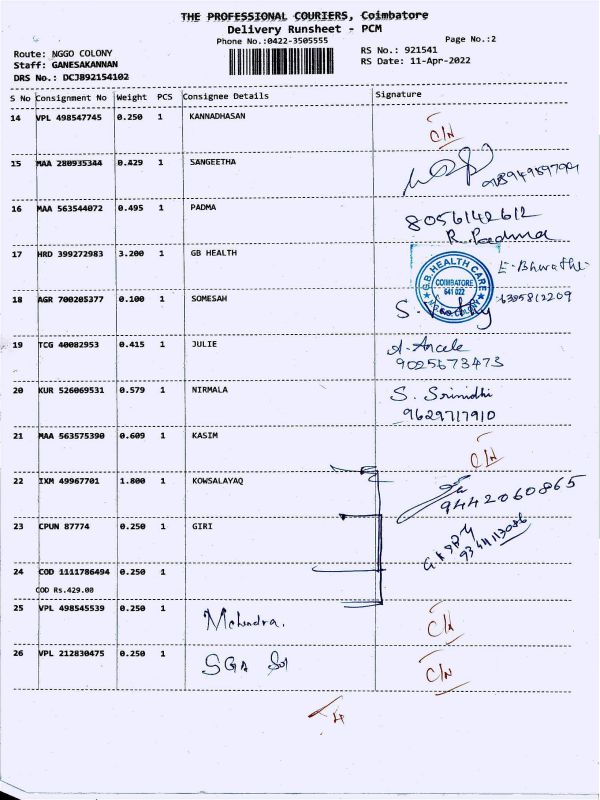 THE PROFESSIONAL COURIERS, Coimbatore
Delivery Runsheet - PCM
Phone No.:0422-3505555
Page No.:2
Route: NGGO COLONY
RS No.: 921541
Staff: GANESAKANNAN
RS Date: 11-Apr-2022
DRS No.: DCJB92154102
S No Consignment No Weight PCS Consignee Details Signature
14 VPL 498547745 0.250 1 KANNADHASAN C/N
15 MAA 280935344 0.429 1 SANGEETHA
16 MAA 563544072 0.495 1 PADMA 8056142612
R. Padma
17 HRD 399272983 3.200 1 GB HEALTH E-Bharathi
G.B. HEALTH CARE
COIMBATORE
641 022
N.G.G.O COLONY
18 AGR 700205377 0.100 1 SOMESAH 6385812209
19 TCG 40082953 0.415 1 JULIE A. Ancele
9025673473
20 KUR 526069531 0.579 1 NIRMALA S. Srinidhi
9629717910
21 MAA 563575390 0.609 1 KASIM C/N
22 IXM 49967701 1.800 1 KOWSALAYAQ 9442060865
23 CPUN 87774 0.250 1 GIRI
24 COD 1111786494 0.250 1
COD Rs.429.00
25 VPL 498545539 0.250 1 Mehindra. C/N
26 VPL 212830475 0.250 1 SGA C/N